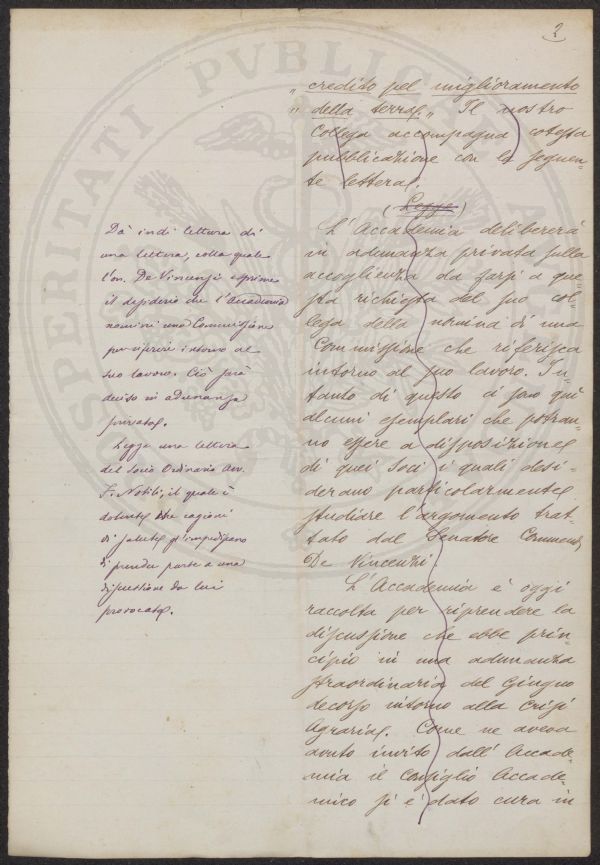 2
„ credito pel miglioramento
„ della terra„. Il nostro
Collega accompagna cotesta
pubblicazione con la seguen-
te lettera.
(Legge)
L'Accademia delibererà
in adunanza privata sulla
accoglienza da farsi a que
sta richiesta del suo col
lega della nomina di una
Commissione che riferisca
intorno al suo lavoro. In
tanto di questo ci sono qui
alcuni esemplari che potran-
no essere a disposizione
di quei Soci i quali desi-
derano particolarmente
studiare l'argomento trat-
tato dal Senatore Commend.
De Vincenzi
L'Accademia è oggi
raccolta per riprendere la
discussione che ebbe prin-
cipio in una adunanza
straordinaria del Giugno
decorso intorno alla Crisi
Agraria. Come ne aveva
avuto invito dall'Accade-
mia il Consiglio Accade-
mico si è dato cura in
Dà indi lettura di
una lettera, colla quale
l'on. De Vincenzi esprime
il desiderio che l'Accademia
nomini una Commissione
per riferire intorno al
suo lavoro. Ciò sarà
deciso in adunanza
privata.
Legge una lettera
del Socio Ordinario Avv.
F. Nobili, il quale è
dolente che ragioni
di salute gl'impediscano
di prender parte a una
discussione da lui
provocata.
PROSPERITATI PVBLICAE AVGENDAE